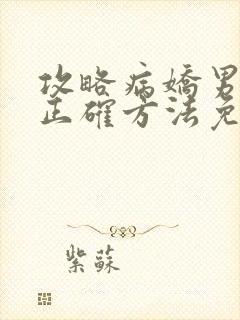 攻略病嬌男
正確方法免
紫蘇